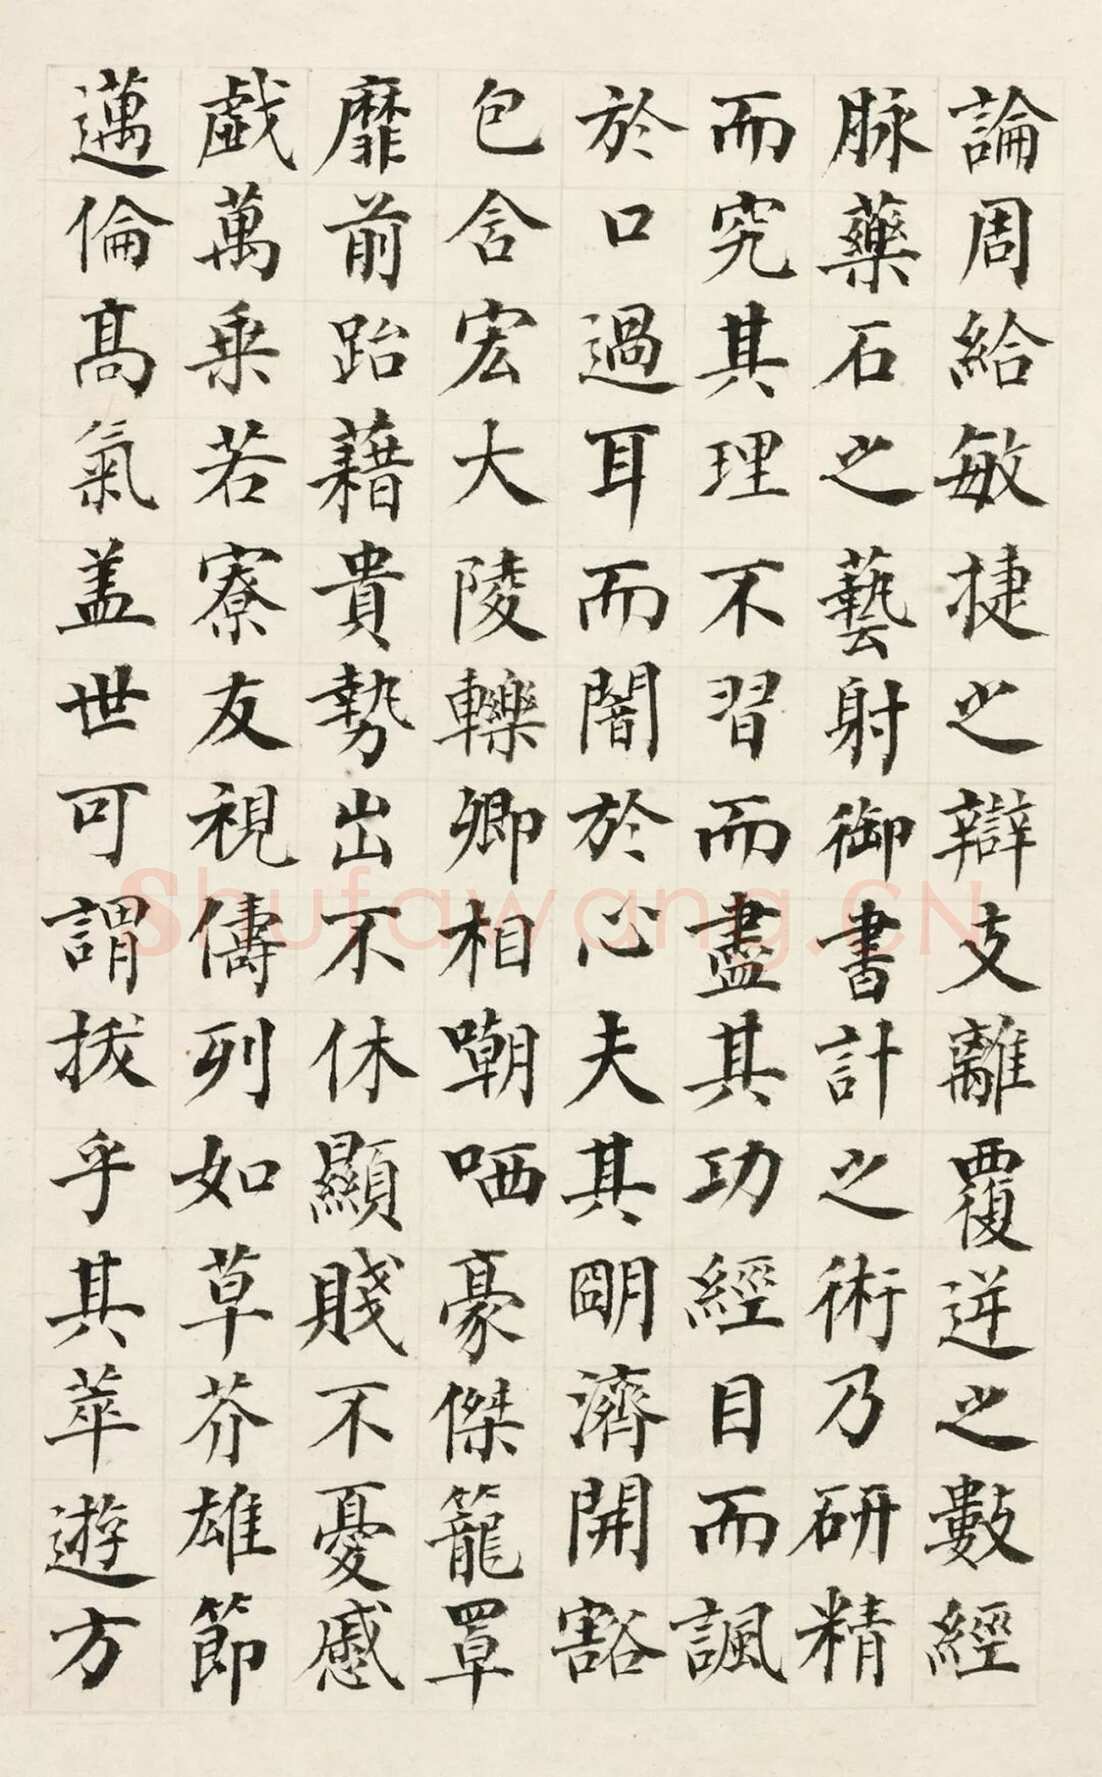 論周給敏捷之辯支離覆逆之數經
脉藥石之藝射御書計之術乃研精
而究其理不習而盡其功經目而諷
於口過耳而闇於心夫其明濟開豁
包含宏大陵轢卿相嘲哂豪傑籠罩
靡前跆藉貴勢出不休顯賤不憂慼
戲萬乘若寮友視儔列如草芥雄節
邁倫高氣蓋世可謂拔乎其萃遊方
Shufawang.CN